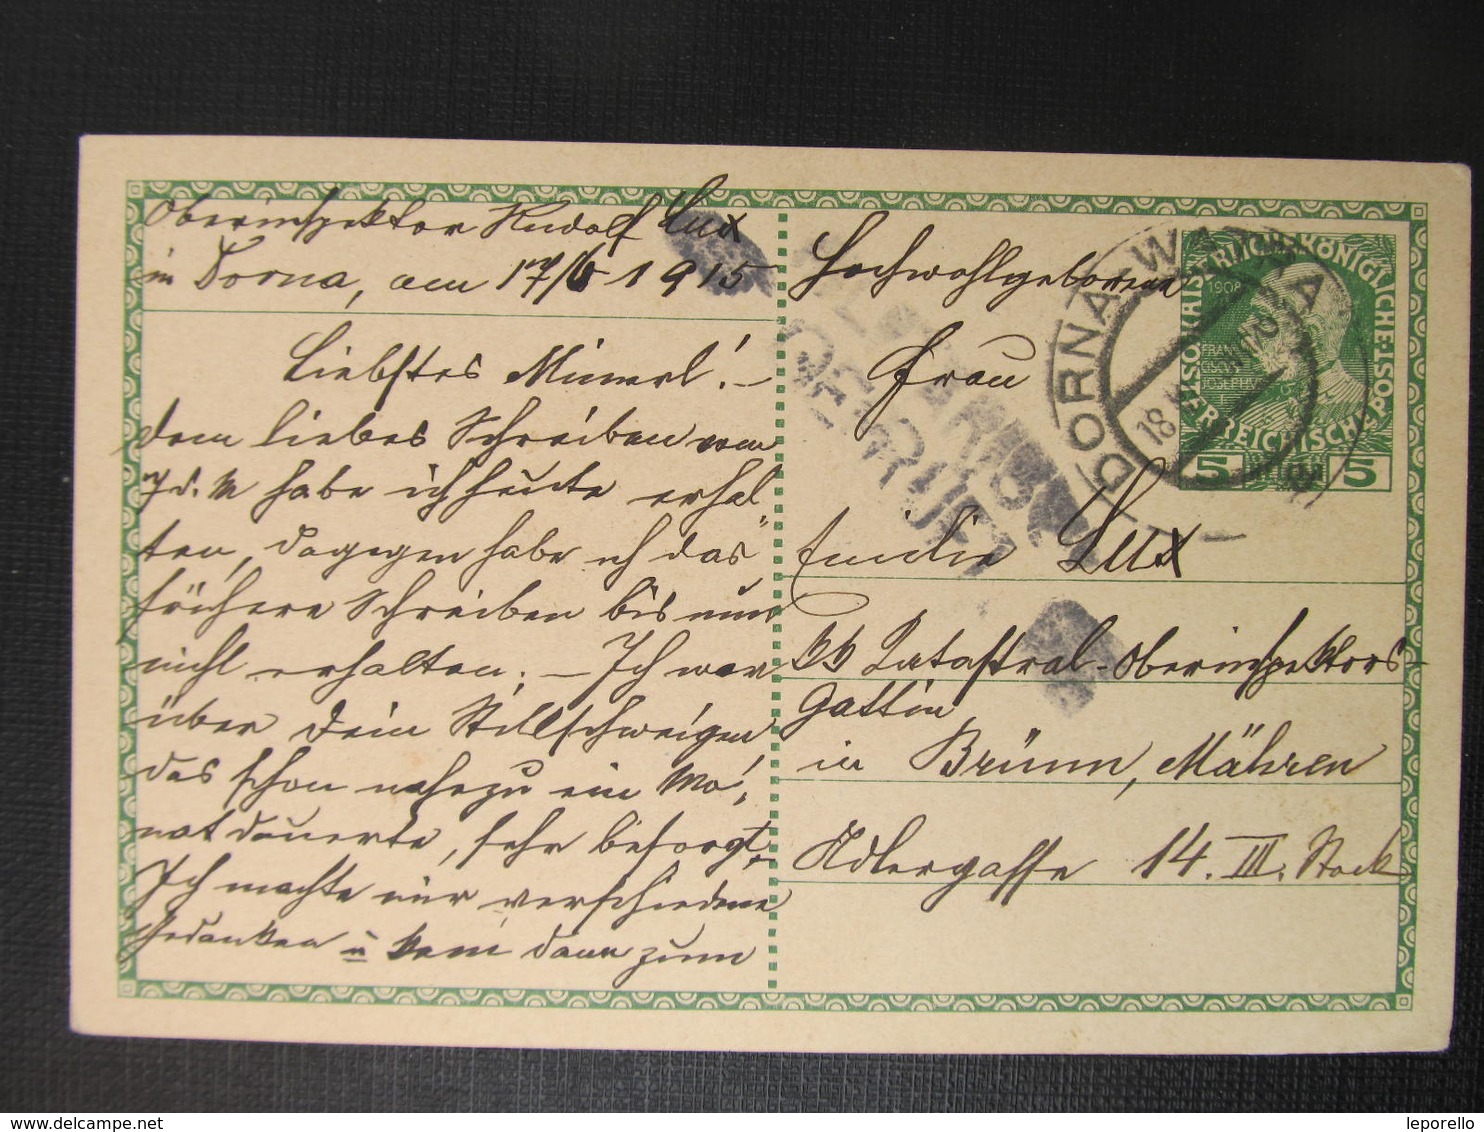 Oberinspektor Rudolf Lux
in Dorna, am 17/6 1915
Liebstes Minerl! –
Dein liebes Schreiben vom
7 d. M habe ich heute erhal-
ten, dagegen habe ich das
frühere Schreiben bis nun
nicht erhalten. – Ich war
über Dein Stillschweigen
das schon nahezu ein Mo-
nat dauerte, sehr besorgt.
Ich machte mir verschiedene
Gedanken u kam dann zum
Hochwohlgeborene
Frau
Emilie Lux
kk Katastral-Oberinspektors-
Gattin
in Brünn, Mähren
Adlergasse 14. III. Stock
DORNA WATRA
18
KAISERL. KÖNIGLICHE POST
ÖSTERREICHISCHE
1908
FRANCISCVS
JOSEPHVS I
5 5
leporello